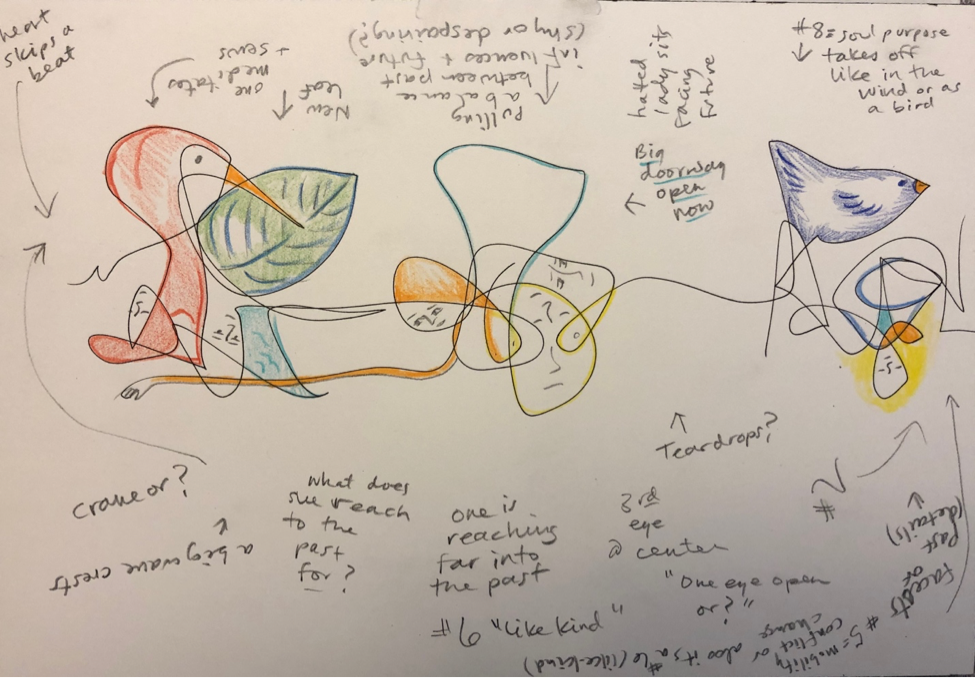 heart
skips a
beat
one
meditates
+ sews
New
Leaf
Pulling
a balance
between past
influences + future
(Shy or despairing?)
hated
lady sits
facing
future
Big
doorway
open
now
#8 = soul purpose
takes off
like in the
wind or as
a bird
crane or?
a big wave crests
what does
she reach
to the
past
for?
one is
reaching
far into
the past
#6 "Like kind"
3rd
eye
@ center
Teardrops?
"One eye open
or?"
#2
Past
(details)
facets
or
#5 = mobility
conflict or
change
also it's a #6 (like-kind)